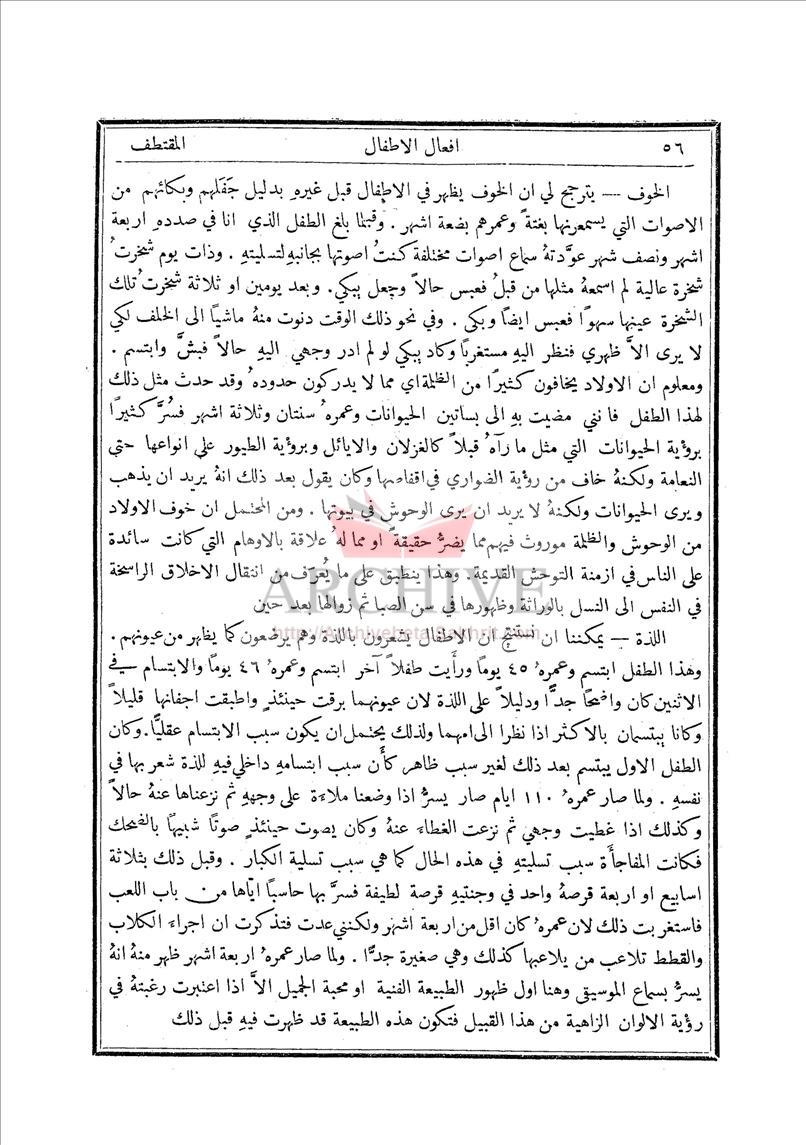 ٥٦ افعال الاطفال المقتطف
الخوف — يترجح لي ان الخوف يظهر في الاطفال قبل غيرهِ بدليل جَفَلهم وبكائهم من
الاصوات التي يسمعونها بغتةً وعمرهم بضعة اشهر . وقبلما بلغ الطفل الذي انا في صدده اربعة
اشهر ونصف شهر عوَّدتهُ سماع اصوات مختلفة كنتُ اصوتها بجانبهِ لتسليتهِ . وذات يوم شخرتُ
شخرة عالية لم اسمعهُ مثلها من قبلُ فعبس حالاً وجعل يبكي . وبعد يومين او ثلاثة شخرتُ تلك
الشخرة عينها سهوًا فعبس ايضًا وبكى . وفي نحو ذلك الوقت دنوت منهُ ماشيًا الى الخلف لكي
لا يرى الاَّ ظهري فنظر اليهِ مستغربًا وكاد يبكي لو لم ادر وجهي اليهِ حالاً فبشَّ وابتسم .
ومعلوم ان الاولاد يخافون كثيرًا من الظلمة اي مما لا يدركون حدودهُ وقد حدث مثل ذلك
لهذا الطفل فانني مضيت بهِ الى بساتين الحيوانات وعمرهُ سنتان وثلاثة اشهر فسُرَّ كثيرًا
برؤية الحيوانات التي مثل ما رآهُ قبلاً كالغزلان والايائل وبرؤية الطيور على انواعها حتى
النعامة ولكنهُ خاف من رؤية الضواري في اقفاصها وكان يقول بعد ذلك انهُ يريد ان يذهب
ويرى الحيوانات ولكنهُ لا يريد ان يرى الوحوش في بيوتها . ومن المحتمل ان خوف الاولاد
من الوحوش والظلمة موروث فيهم مما يضرُّ حقيقةً او مما لهُ علاقة بالاوهام التي كانت سائدة
على الناس في ازمنة التوحش القديمة . وهذا ينطبق على ما يُعرَف من انتقال الاخلاق الراسخة
في النفس الى النسل بالوراثة وظهورها في سن الصبا ثم زوالها بعد حين
اللذة — يمكننا ان نستنتج ان الاطفال يشعرون باللذة وهم يرضعون كما يظهر من عيونهم .
وهذا الطفل ابتسم وعمرهُ ٤٥ يومًا ورأَيت طفلاً آخر ابتسم وعمرهُ ٤٦ يومًا والابتسام في
الاثنين كان واضحًا جدًّا ودليلاً على اللذة لان عيونهما برقت حينئذٍ واطبقت اجفانها قليلاً
وكانا يبتسمان بالاكثر اذا نظرا الى امهما ولذلك يحتمل ان يكون سبب الابتسام عقليًّا . وكان
الطفل الاول يبتسم بعد ذلك لغير سبب ظاهر كأَن سبب ابتسامهِ داخلي فيهِ للذة شعر بها في
نفسهِ . ولما صار عمرهُ ١١٠ ايام صار يسرُّ اذا وضعنا ملاءة على وجههِ ثم نزعناها عنهُ حالاً
وكذلك اذا غطيت وجهي ثم نزعت الغطاءَ عنهُ وكان يصوت حينئذٍ صوتًا شبيهًا بالضحك
فكانت المفاجأَة سبب تسليتهِ في هذه الحال كما هي سبب تسلية الكبار . وقبل ذلك بثلاثة
اسابيع او اربعة قرصهُ واحد في وجنتيهِ قرصة لطيفة فسرَّ بها حاسبًا ايّاها من باب اللعب
فاستغربت ذلك لان عمرهُ كان اقل من اربعة اشهر ولكنني عدت فتذكرت ان اجراء الكلاب
والقطط تلاعب من يلاعبها كذلك وهي صغيرة جدًّا . ولما صار عمرهُ اربعة اشهر ظهر منهُ انهُ
يسرُّ بسماع الموسيقى وهنا اول ظهور الطبيعة الفنية او محبة الجميل الاَّ اذا اعتبرت رغبتهُ في
رؤية الالوان الزاهية من هذا القبيل فتكون هذه الطبيعة قد ظهرت فيهِ قبل ذلك
ARCHIVE
http://Archivebeta.Sakhrit.com